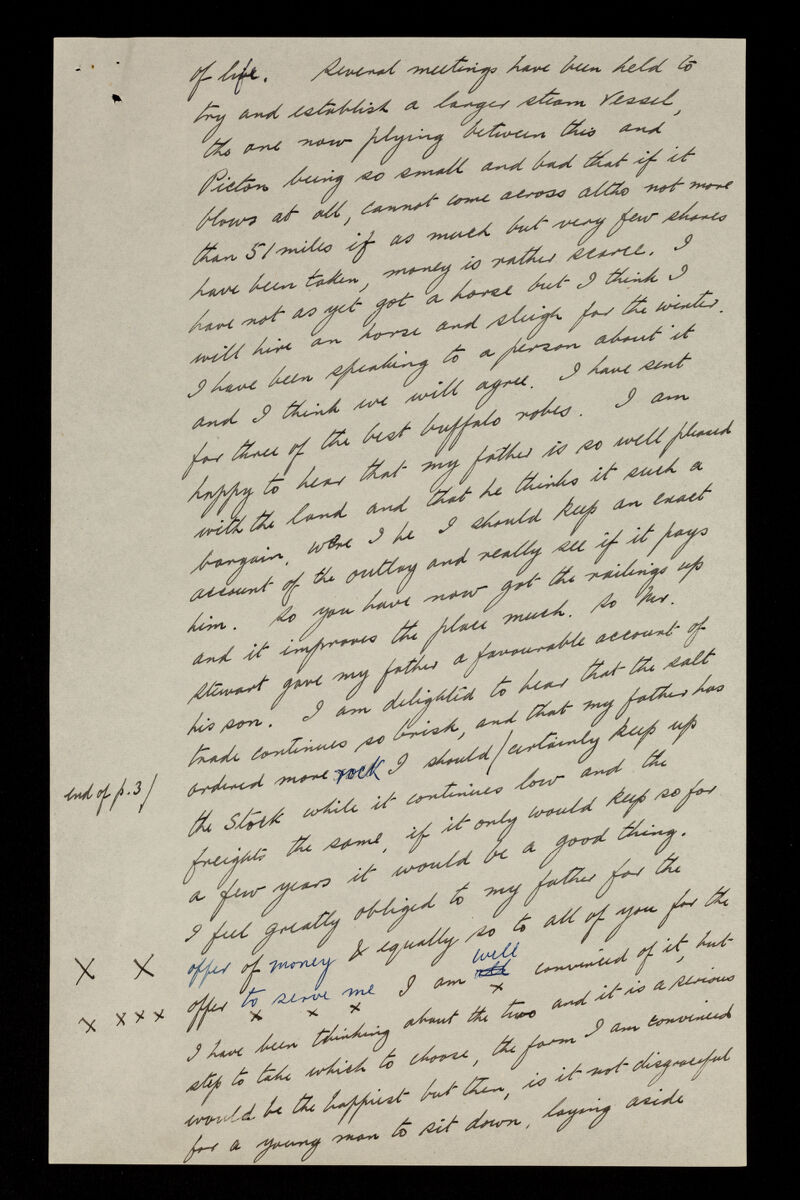 of life. Several meetings have been held to
try and establish a larger steam vessel,
the one now plying between this and
Picton being so small and bad that if it
blows at all, cannot come across altho not more
than 51 miles if as much but very few shares
have been taken, money is rather scarce. I
have not as yet got a horse but I think I
will hire an horse and sleigh for the winter.
I have been speaking to a person about it
and I think we will agree. I have sent
for three of the best buffalo robes. I am
happy to hear that my father is so well pleased
with the land and that he thinks it such a
bargain, were I he I should keep an exact
account of the outlay and really see if it pays
him. So you have now got the railings up
and it improves the place much. So Mr.
Stewart gave my father a favourable account of
his son. I am delighted to hear that the salt
trade continues so brisk, and that my father has
ordered more rock I should/certainly keep up
end of p.3/
the Stock while it continues low and the
freights the same, if it only would keep so for
a few years it would be a good thing.
I feel greatly obliged to my father for the
x x offer of money & equally so to all of you for the
x x x x offer to serve me I am well convinced of it, but
x x x x
I have been thinking about the two and it is a serious
step to take which to choose, the farm I am convinced
would be the happiest but then, is it not disgraceful
for a young man to sit down, laying aside